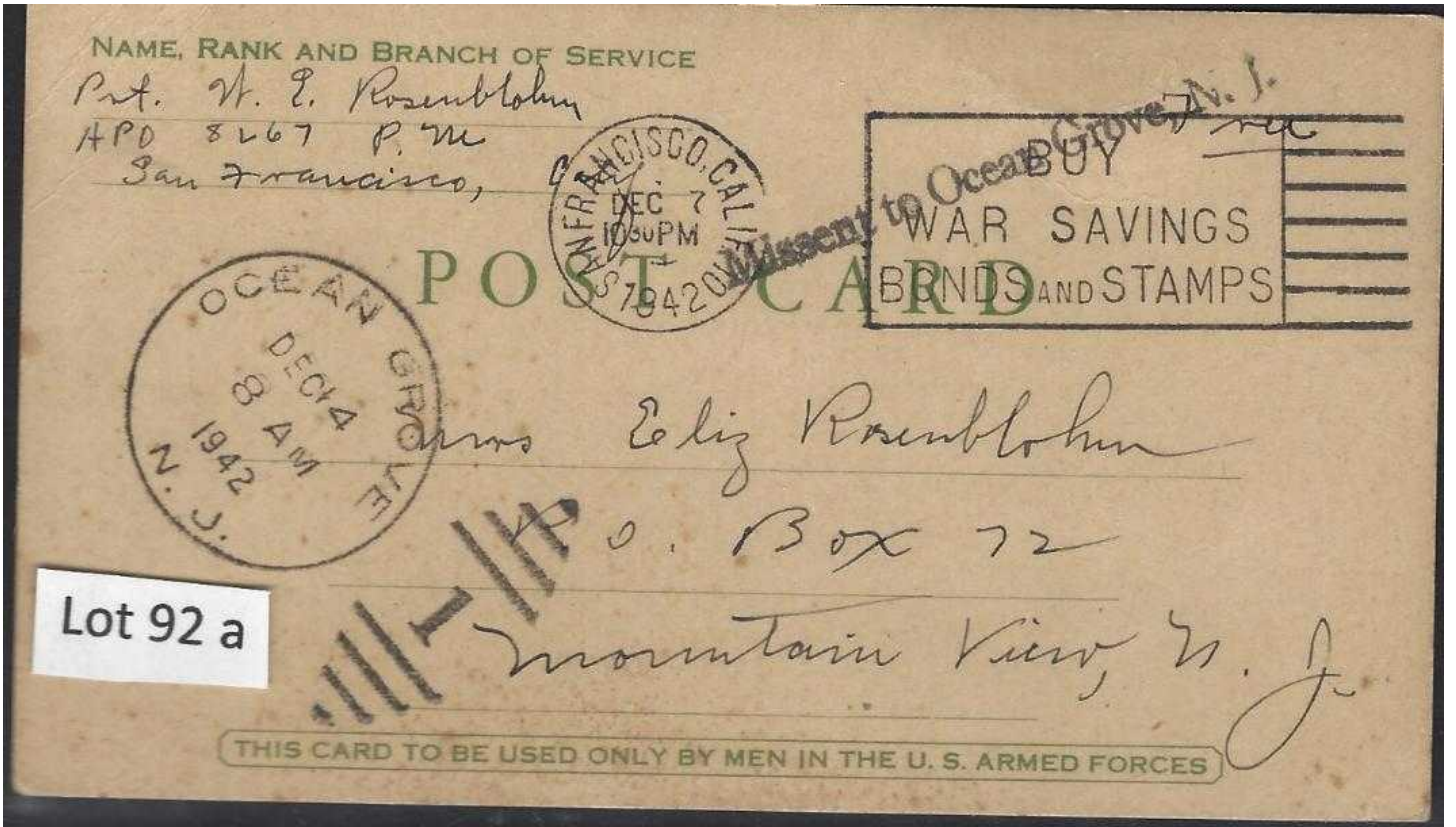 NAME, RANK AND BRANCH OF SERVICE
Pvt. W. E. Rosenblohm
APO 8267 P.M
San Francisco,
Free
SAN FRANCISCO, CALIF.
DEC 7
10 30 PM
1942
Missent to Ocean Grove, N. J.
BUY
WAR SAVINGS
BONDS AND STAMPS
POST CARD
OCEAN GROVE
N. J.
DEC 14
8 AM
1942
Mrs Eliz Rosenblohm
P. O. Box 72
Mountain View, N. J.
1
Lot 92 a
THIS CARD TO BE USED ONLY BY MEN IN THE U. S. ARMED FORCES